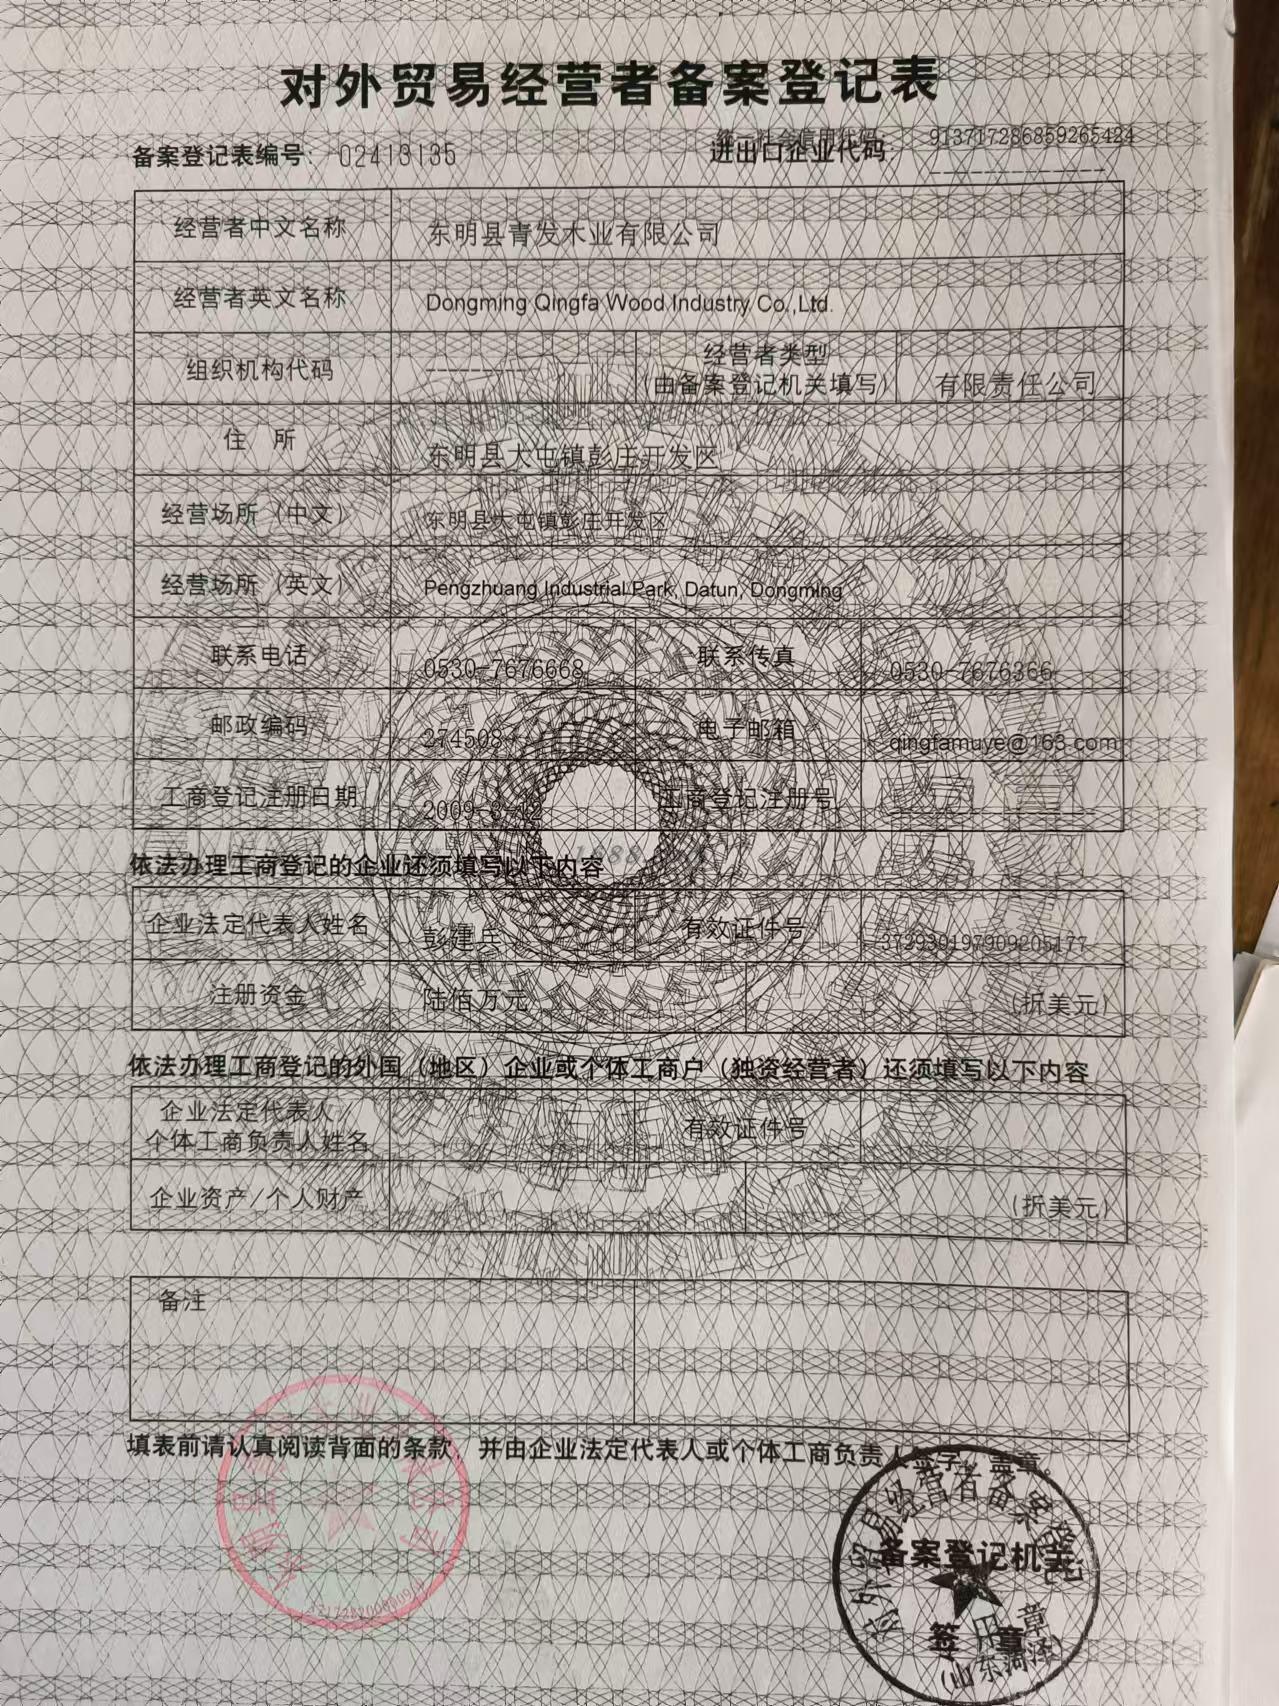 对外贸易经营者备案登记表
统一社会信用代码: 913717286859265424
备案登记表编号: 02413135 进出口企业代码:
经营者中文名称 东明县青发木业有限公司
经营者英文名称 Dongming Qingfa Wood Industry Co.,Ltd.
组织机构代码 ---------- 经营者类型
(由备案登记机关填写) 有限责任公司
住 所 东明县大屯镇彭庄开发区
经营场所（中文） 东明县大屯镇彭庄开发区
经营场所（英文） Pengzhuang Industrial Park, Datun, Dongming
联系电话 0530-7676668 联系传真 0530-7676366
邮政编码 274508 电子邮箱 qingfamuye@163.com
工商登记注册日期 2009-3-12 工商登记注册号
依法办理工商登记的企业还须填写以下内容
企业法定代表人姓名 彭建兵 有效证件号 372930197909205177
注册资金 陆佰万元 (折美元)
依法办理工商登记的外国（地区）企业或个体工商户（独资经营者）还须填写以下内容
企业法定代表人/
个体工商负责人姓名 有效证件号
企业资产/个人财产 (折美元)
备注
填表前请认真阅读背面的条款，并由企业法定代表人或个体工商负责人签字、盖章。
对外贸易经营者备案登记
备案登记机关
签 章
用 章
(山东菏泽)